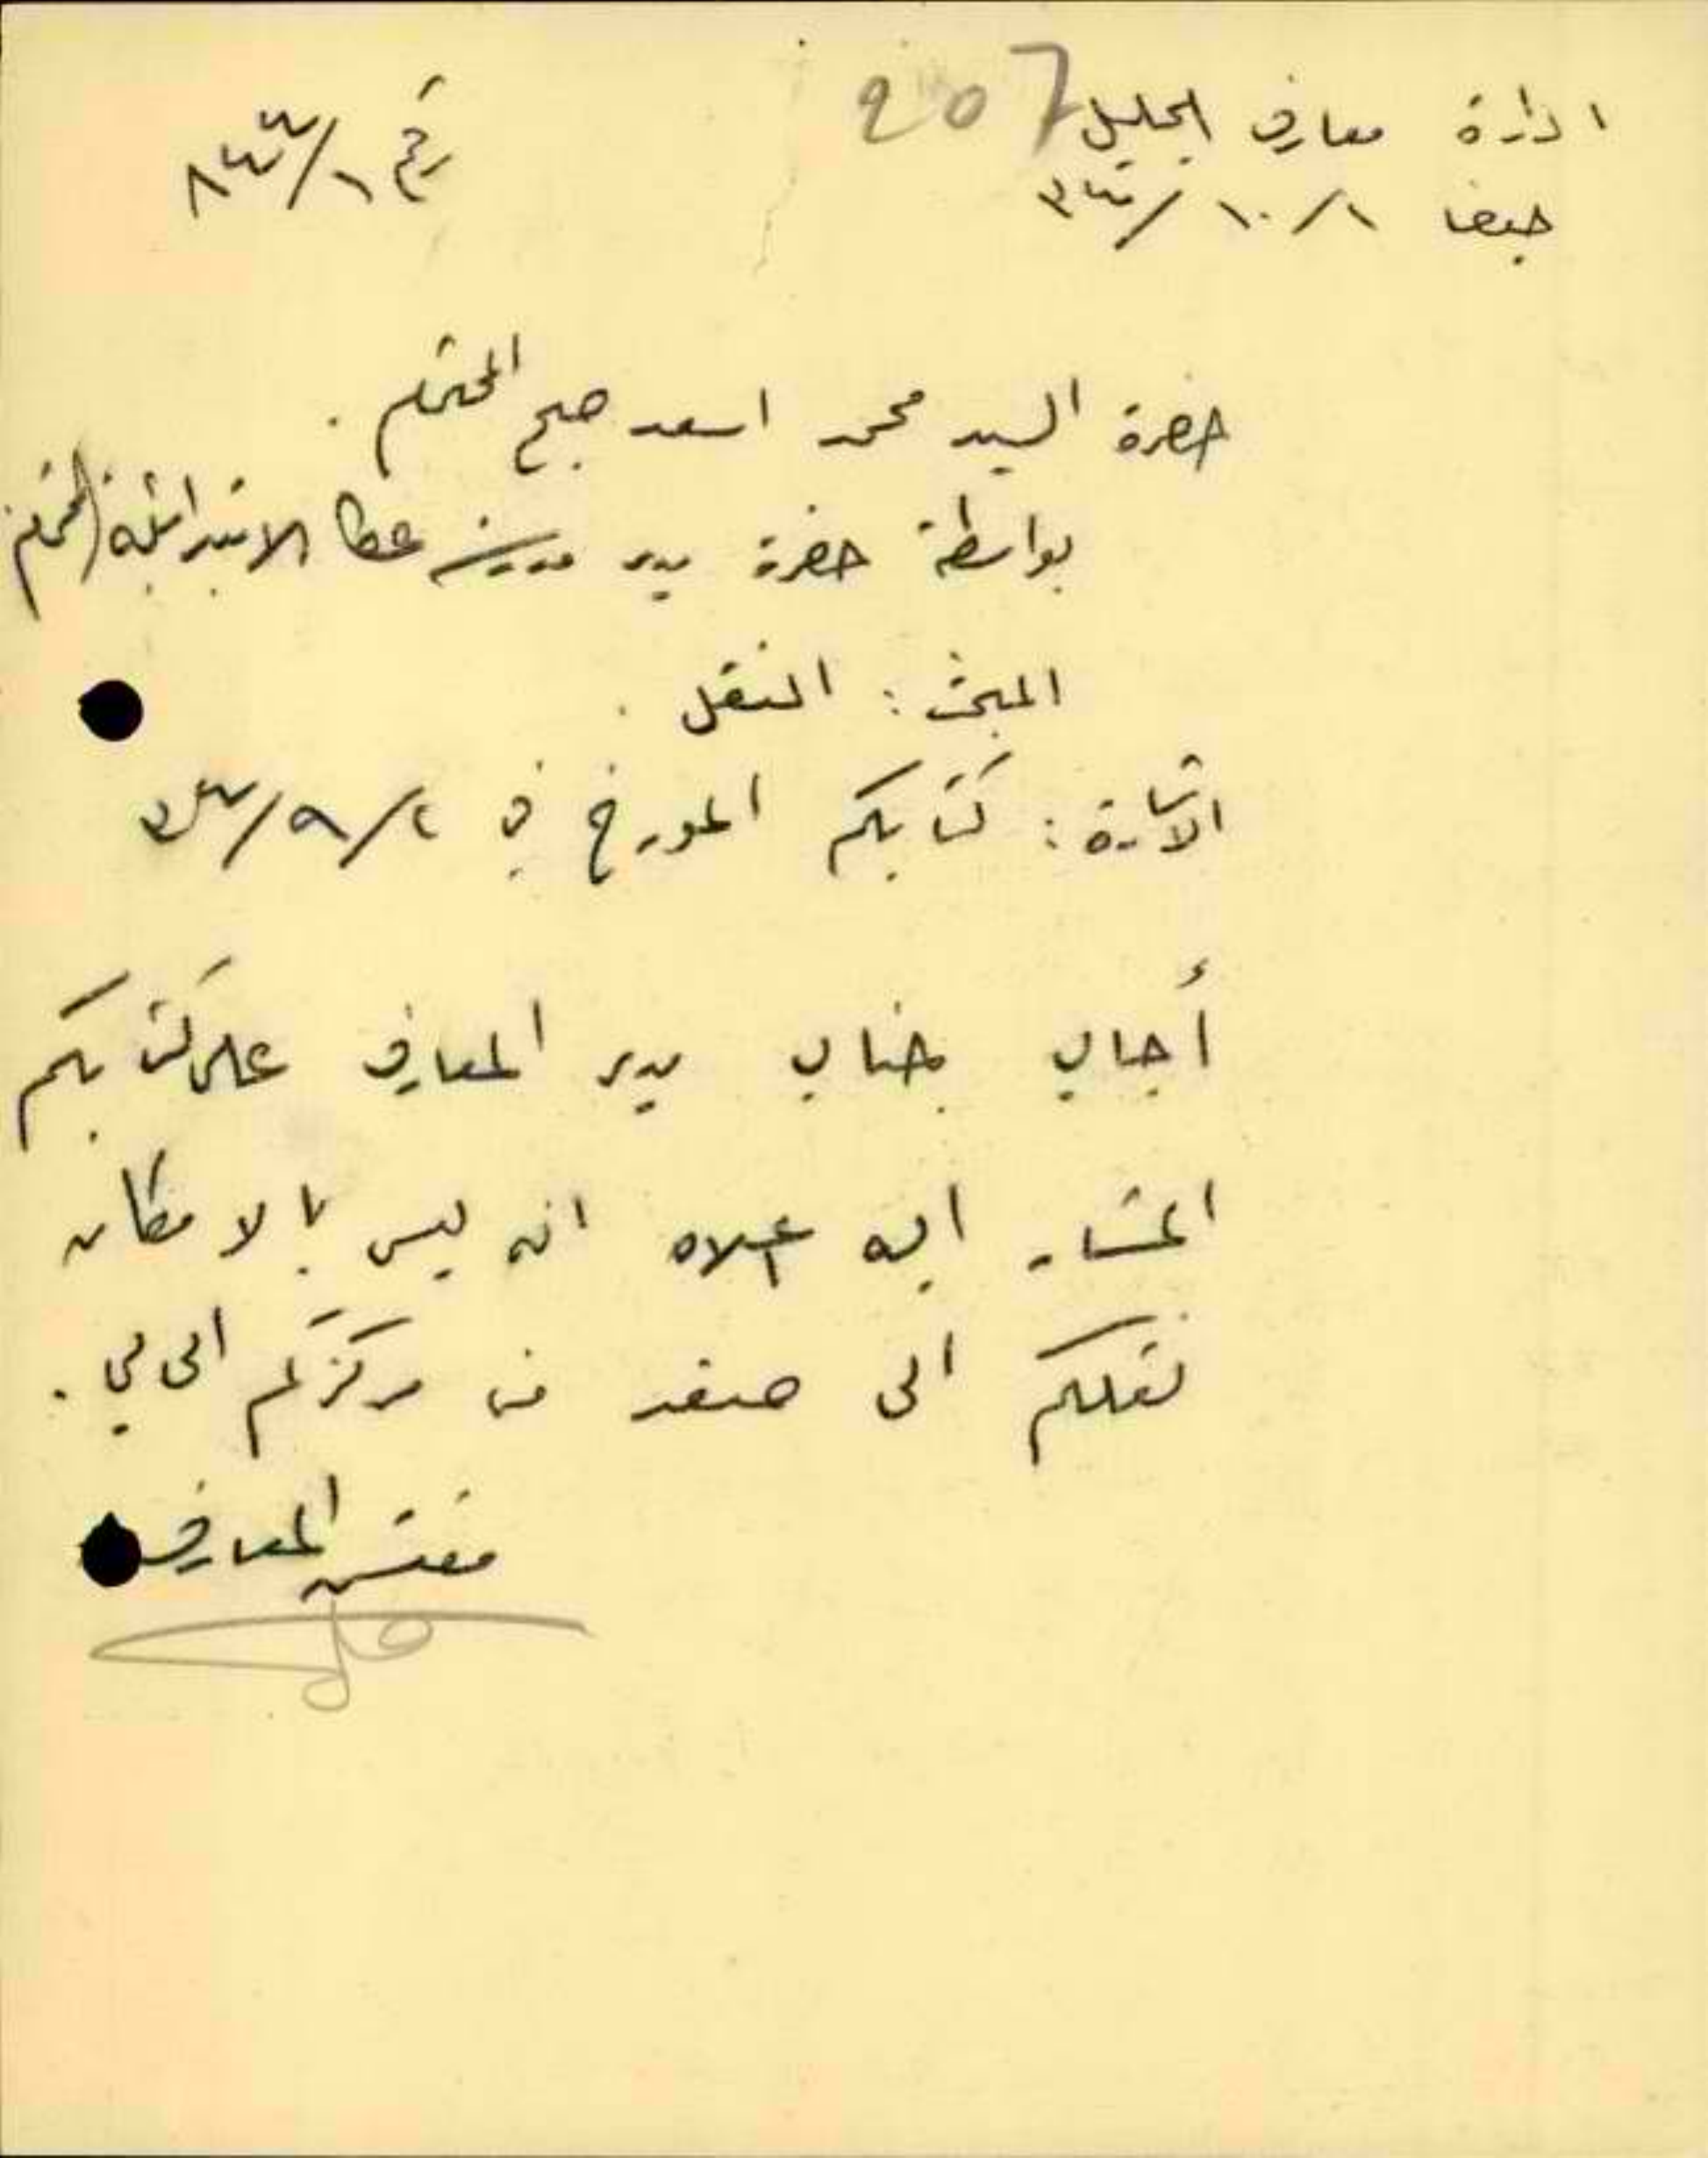 ادارة معارف الجليل 207
حيفا ١/١٠/٣٤ رقم ١/٨٣٤
حضرة السيد محمد اسعد صبح المحترم.
بواسطة حضرة مدير مدرسة عكا الابتدائية المحترم
المبحث: النقل.
الاشارة: كتابكم المؤرخ في ٢/٩/٣٤
أجاب جناب مدير المعارف على كتابكم
المشار اليه اعلاه انه ليس بالامكان
نقلكم الى صفد من مركزكم الحالي.
مفتش المعارف